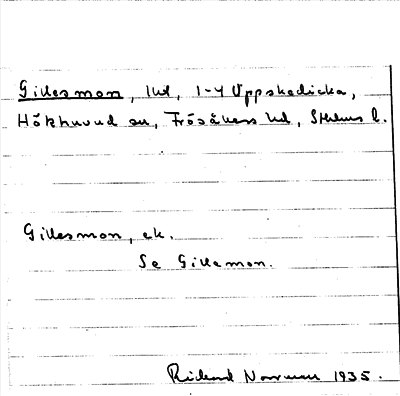 Gillesmon, lUd, 1-4 Uppskedicka,
Hökhuvud sn, Frösåkers hd, Sthlms l.
Gillesmon, ek.
Se Gillemon.
Rickard Norrman 1935.